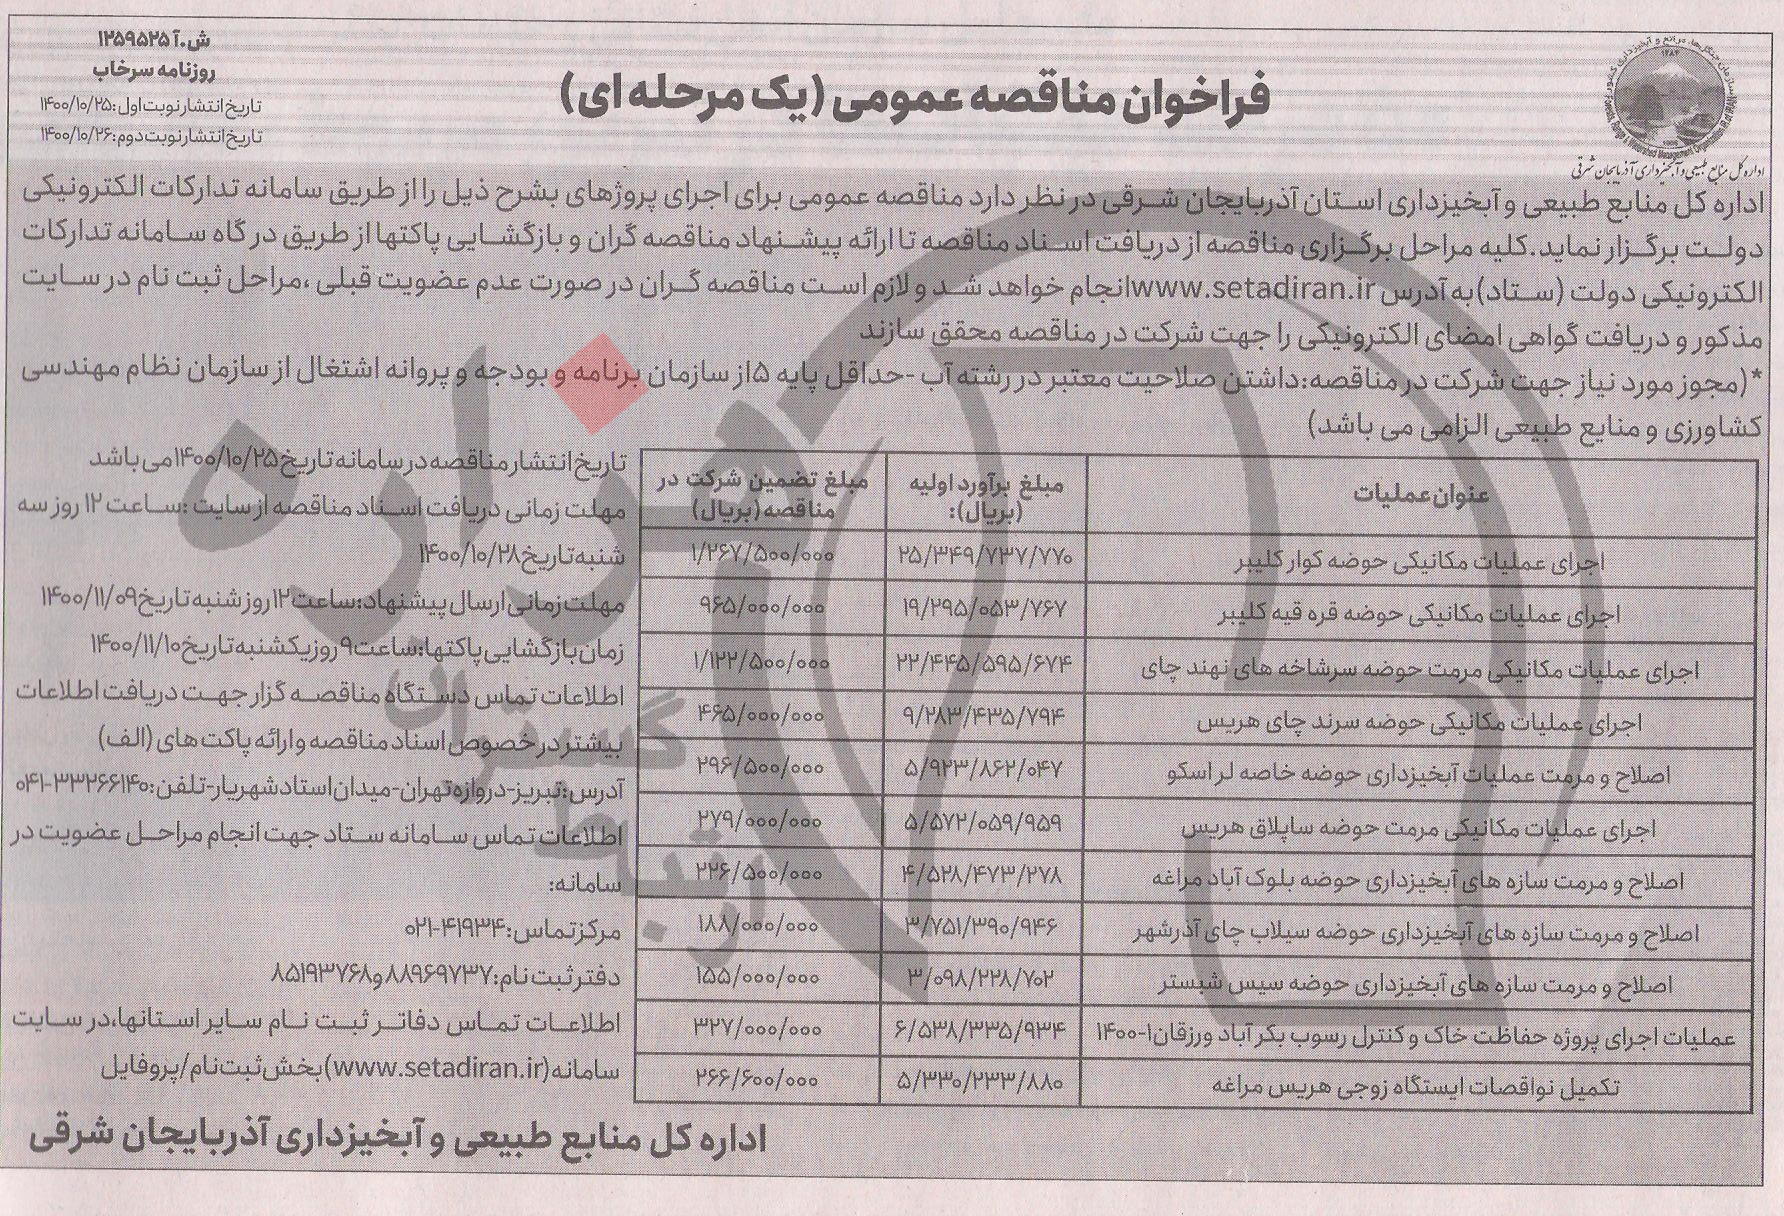 ش.آ ۱۲۵۹۵۲۵
روزنامه سرخاب
تاریخ انتشار نوبت اول: ۱۴۰۰/۱۰/۲۵
تاریخ انتشار نوبت دوم: ۱۴۰۰/۱۰/۲۶
فراخوان مناقصه عمومی (یک مرحله ای)
اداره کل منابع طبیعی و آبخیزداری آذربایجان شرقی
اداره کل منابع طبیعی و آبخیزداری استان آذربایجان شرقی در نظر دارد مناقصه عمومی برای اجرای پروژهای بشرح ذیل را از طریق سامانه تدارکات الکترونیکی
دولت برگزار نماید. کلیه مراحل برگزاری مناقصه از دریافت اسناد مناقصه تا ارائه پیشنهاد مناقصه گران و بازگشایی پاکتها از طریق درگاه سامانه تدارکات
الکترونیکی دولت (ستاد) به آدرس www.setadiran.ir انجام خواهد شد و لازم است مناقصه گران در صورت عدم عضویت قبلی ،مراحل ثبت نام در سایت
مذکور و دریافت گواهی امضای الکترونیکی را جهت شرکت در مناقصه محقق سازند
*(مجوز مورد نیاز جهت شرکت در مناقصه: داشتن صلاحیت معتبر در رشته آب -حداقل پایه ۵ از سازمان برنامه و بودجه و پروانه اشتغال از سازمان نظام مهندسی
کشاورزی و منابع طبیعی الزامی می باشد)
عنوان عملیات | مبلغ برآورد اولیه (بریال): | مبلغ تضمین شرکت در مناقصه (بریال)
اجرای عملیات مکانیکی حوضه کوار کلیبر | ۲۵/۳۴۹/۷۳۷/۷۷۰ | ۱/۲۶۷/۵۰۰/۰۰۰
اجرای عملیات مکانیکی حوضه قره قیه کلیبر | ۱۹/۲۹۵/۰۵۳/۷۶۷ | ۹۶۵/۰۰۰/۰۰۰
اجرای عملیات مکانیکی مرمت حوضه سرشاخه های نهند چای | ۲۲/۴۴۵/۵۹۵/۶۷۴ | ۱/۱۲۲/۵۰۰/۰۰۰
اجرای عملیات مکانیکی حوضه سرند چای هریس | ۹/۲۸۳/۴۳۵/۷۹۴ | ۴۶۵/۰۰۰/۰۰۰
اصلاح و مرمت عملیات آبخیزداری حوضه خاصه لر اسکو | ۵/۹۲۳/۸۶۲/۰۴۷ | ۲۹۶/۵۰۰/۰۰۰
اجرای عملیات مکانیکی مرمت حوضه ساپلاق هریس | ۵/۵۷۲/۰۵۹/۹۵۹ | ۲۷۹/۰۰۰/۰۰۰
اصلاح و مرمت سازه های آبخیزداری حوضه بلوک آباد مراغه | ۴/۵۲۸/۴۷۳/۲۷۸ | ۲۲۶/۵۰۰/۰۰۰
اصلاح و مرمت سازه های آبخیزداری حوضه سیلاب چای آذرشهر | ۳/۷۵۱/۳۹۰/۹۴۶ | ۱۸۸/۰۰۰/۰۰۰
اصلاح و مرمت سازه های آبخیزداری حوضه سیس شبستر | ۳/۰۹۸/۲۲۸/۷۰۲ | ۱۵۵/۰۰۰/۰۰۰
عملیات اجرای پروژه حفاظت خاک و کنترل رسوب بکر آباد ورزقان ۱-۱۴۰۰ | ۶/۵۳۸/۳۳۵/۹۳۴ | ۳۲۷/۰۰۰/۰۰۰
تکمیل نواقصات ایستگاه زوجی هریس مراغه | ۵/۳۳۰/۲۳۳/۸۸۰ | ۲۶۶/۶۰۰/۰۰۰
تاریخ انتشار مناقصه در سامانه تاریخ ۱۴۰۰/۱۰/۲۵ می باشد
مهلت زمانی دریافت اسناد مناقصه از سایت :ساعت ۱۲ روز سه
شنبه تاریخ ۱۴۰۰/۱۰/۲۸
مهلت زمانی ارسال پیشنهاد: ساعت ۱۲ روز شنبه تاریخ ۱۴۰۰/۱۱/۰۹
زمان بازگشایی پاکتها: ساعت ۹ روز یکشنبه تاریخ ۱۴۰۰/۱۱/۱۰
اطلاعات تماس دستگاه مناقصه گزار جهت دریافت اطلاعات
بیشتر در خصوص اسناد مناقصه و ارائه پاکت های (الف)
آدرس: تبریز-دروازه تهران-میدان استاد شهریار-تلفن: ۳۳۲۶۶۱۴۰-۰۴۱
اطلاعات تماس سامانه ستاد جهت انجام مراحل عضویت در
سامانه:
مرکز تماس: ۴۱۹۳۴-۰۲۱
دفتر ثبت نام: ۸۸۹۶۹۷۳۷ و ۸۵۱۹۳۷۶۸
اطلاعات تماس دفاتر ثبت نام سایر استانها، در سایت
سامانه (www.setadiran.ir) بخش ثبت نام/پروفایل
اداره کل منابع طبیعی و آبخیزداری آذربایجان شرقی
هزاره
ارتباط گستران